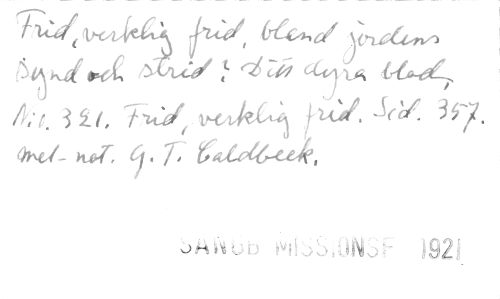 Frid, verklig frid, bland jordens
synd och strid? Ditt dyra blod,
No. 321. Frid, verklig frid. Sid. 357.
met-not. G. T. Caldbeck.
SANGB MISSIONSF 1921